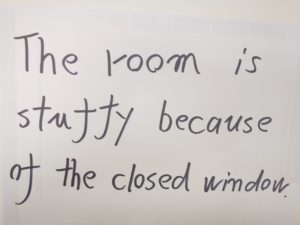 The room is
stuffy because
of the closed window.